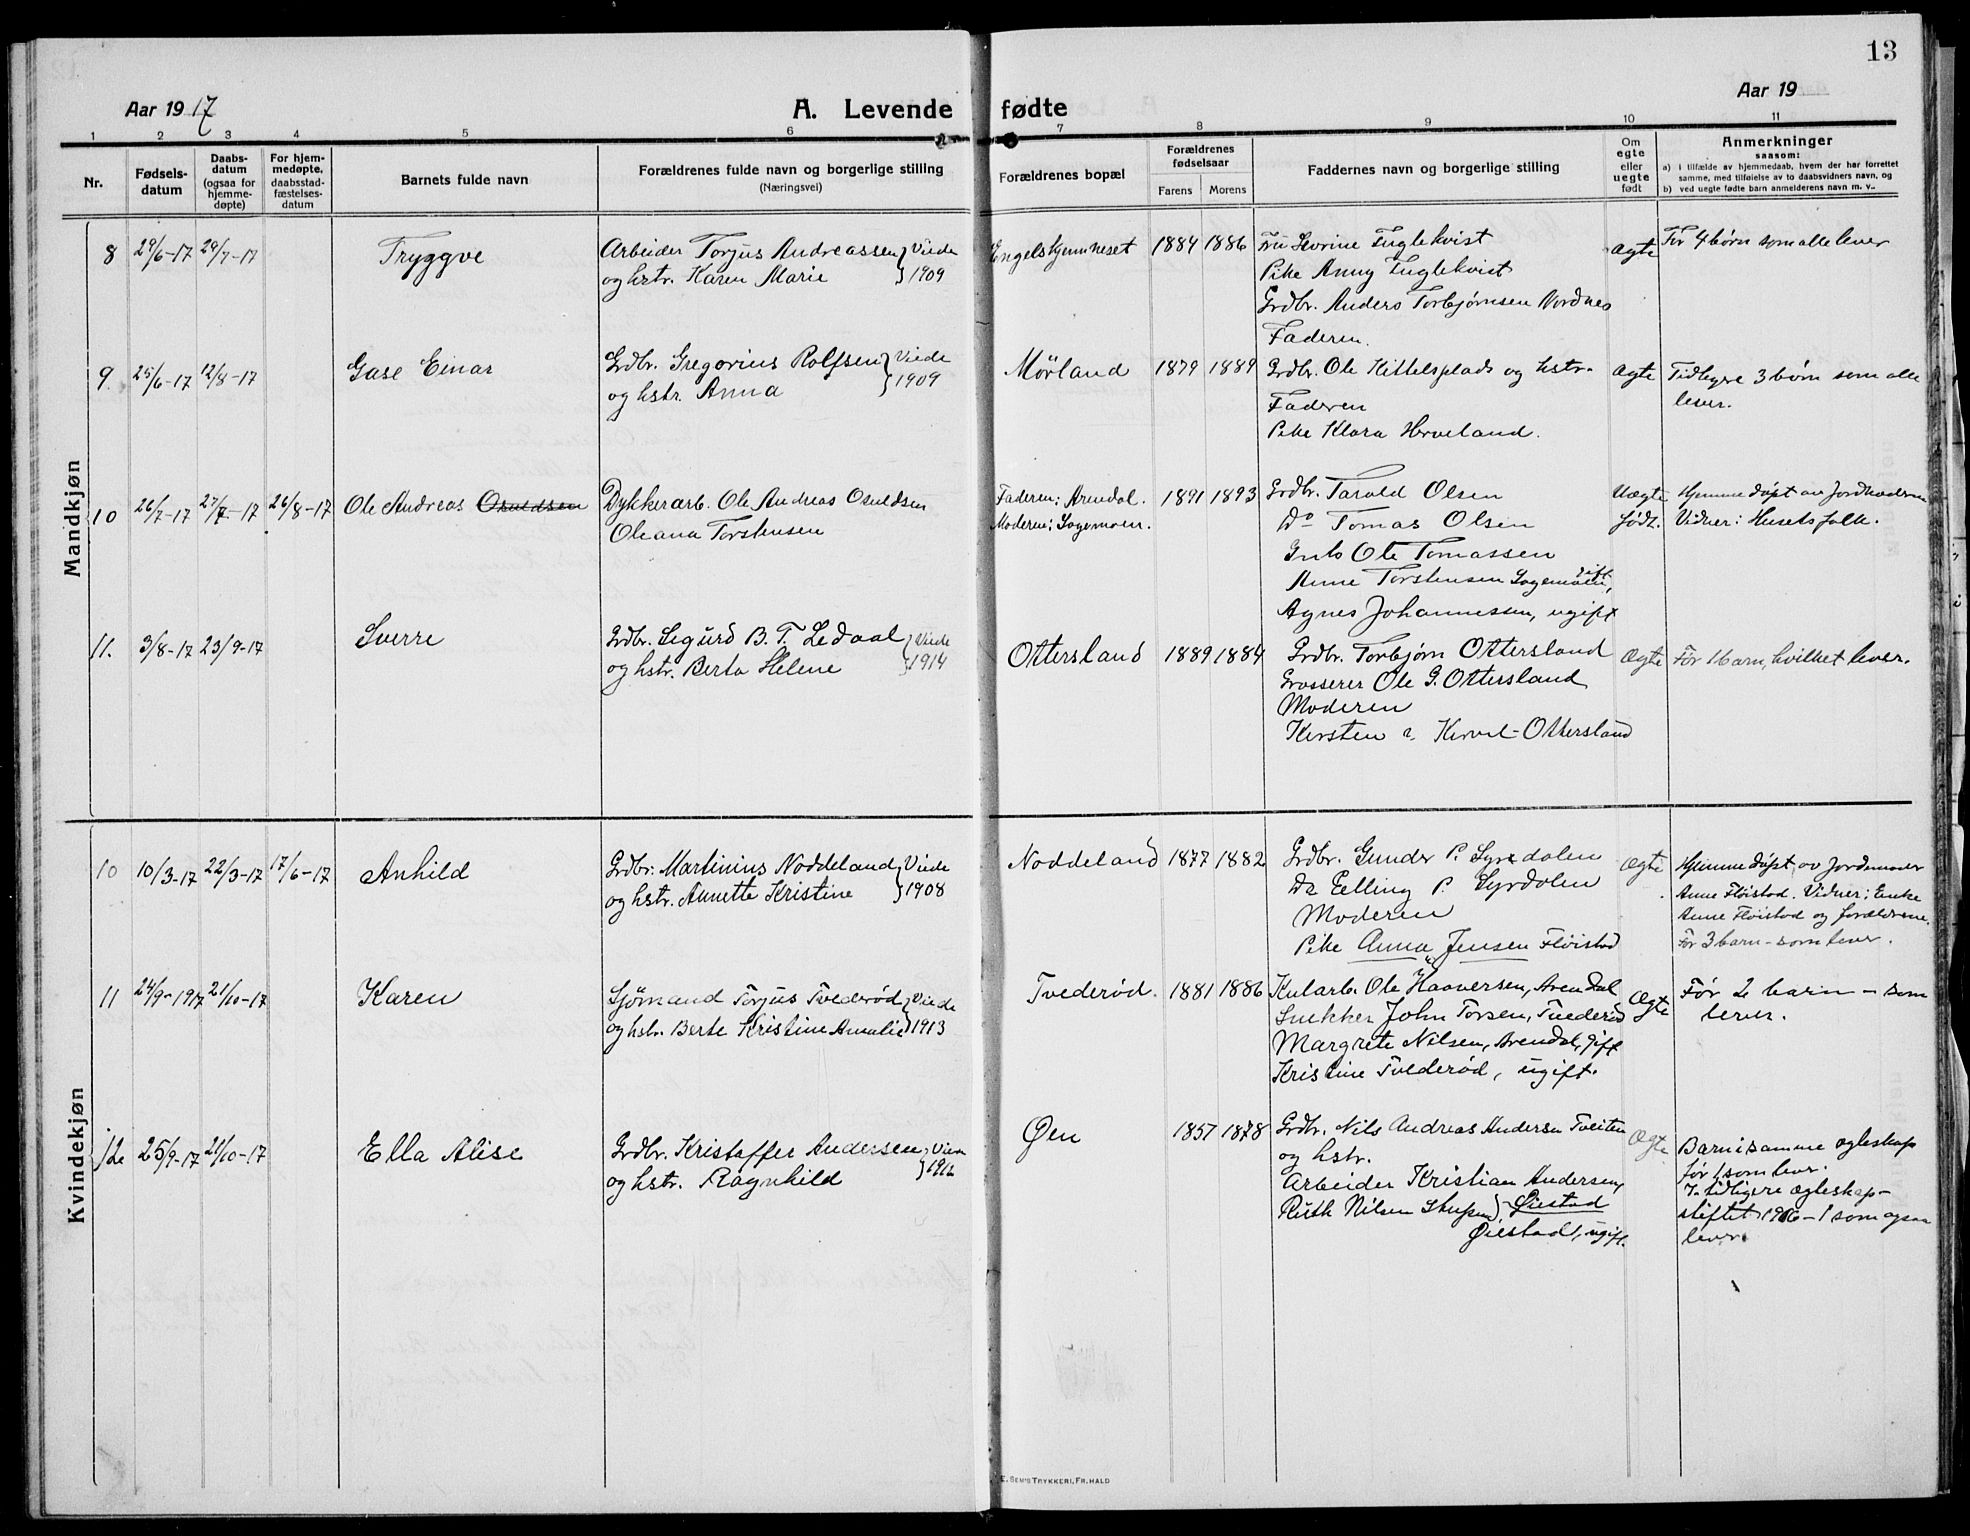 13
Aar 1917
A. Levende fødte
Aar 19
1 2 3 4 5 6 7 8 9 10 11
Nr.
Fødsels-
datum
Daabs-
datum
(ogsaa for
hjemme-
døpte)
For hjem-
medøpte,
daabsstad-
fæstelses-
datum
Barnets fulde navn
Forældrenes fulde navn og borgerlige stilling
(Næringsvei)
Forældrenes bopæl
Forældrenes
fødselsaar
Farens Morens
Faddernes navn og borgerlige stilling
Om
egte
eller
uegte
født
Anmerkninger
saasom:
a) i tilfælde av hjemmedaab, hvem der har forrettet
samme, med tilføielse av to daabsvidners navn, og
b) ved uegte fødte barn anmelderens navn m. v..
Mandkjøn
8 29/6-17 29/7-17
Tryggve
Arbeider Torjus Andreassen } Viede
og hstr. Karen Marie } 1909
Engelskjønneset
1884 1886
Fru Severine Fuglekvist
Pike Anny Fuglekvist
Grdbr. Anders Torbjørnsen Nordnes
Faderen.
Ægte
Før 4 børn som alle lever
9. 25/6-17 12/8-17
Gase Einar
Grdbr. Gregorius Rolfsen } Viede
og hstr. Anna } 1909
Mørland
1879 1889
Grdbr. Ole Kittelsplads og hstr.
Faderen
Pike Klara Herveland.
Ægte
Tidligere 3 børn som alle
lever.
10 26/7-17 27/7-17 26/8-17
Ole Andreas Osuldsen
Dykkerarb. Ole Andreas Osuldsen
Oleana Torstensen
Faderen: Arendal.
Moderen: Sagemoen.
1891 1893
Grdbr. Tarald Olsen
Do Tomas Olsen
Ole Tomassen
Anne Torstensen Sagemoen, gift
Agnes Johannessen, ugift
Uægte
født.
Hjemmedøpt av Jordmoderen
Vidner: Husets folk.
11. 3/8-17 23/9-17
Sverre
Grdbr. Sigurd B. T. Ledaal } Viede
og hstr. Berta Helene } 1914
Ottersland
1889 1884
Grdbr. Torbjørn Ottersland
Grosserer Ole G. Ottersland
Moderen
Kirsten Ottersland
Ægte
Før 1 barn, hvilket lever.
Kvindekjøn
10 10/3-17 22/3-17 17/6-17
Anhild
Grdbr: Martinius Noddeland } Viede
og hstr. Annette Kristine } 1908
Noddeland
1877 1882
Grdbr. Gunder P. Syrdalen
Do Elling P. Syrdalen
Moderen
Pike Anna Jensen Fløistad
Ægte
Hjemmedøpt av Jordemoder
Anne Fløistad. Vidner: Enke
Anne Fløistad og forældrene.
Før 3 barn - som lever.
11 24/9-1917 21/10-17
Karen
Sjømand Torjus Tvederød } Viede
og hstr. Berte Kristine Amalie } 1913
Tvederød.
1881 1886
Kularb. Ole Haaversen, Arendal
Snekker John Torsen, Tvederød
Margrete Nilsen, Arendal, gift
Kristine Tvederød, ugift.
Ægte
Før 2 barn - som
lever.
12 25/9-17 21/10-17
Ella Alise
Grdbr. Kristoffer Andersen } Viede
og hstr. Ragnhild
Øen
1857 1878
Grdbr. Nils Andreas Andersen Tveiten
og hstr.
Arbeider Kristian Andersen,
Ruth Nilsen } Øiestad
Øiestad, ugift.
Ægte
Barn i samme egteskap
før 1 som lever.
I tidligere ægteskap-
stiftet 1906 - 1 som ogsaa
lever.
E. SEM'S TRYKKERI, FR.HALD